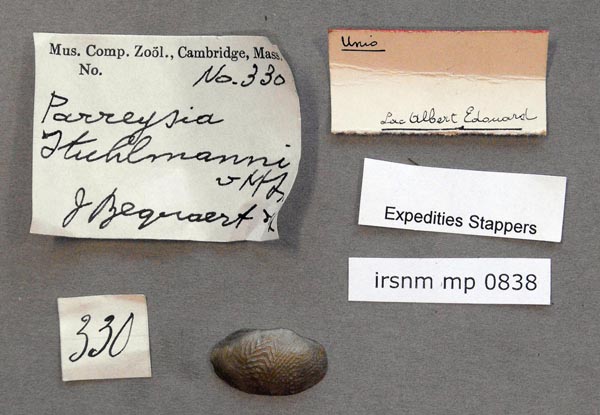 Mus. Comp. Zoöl., Cambridge, Mass.
No. No. 330
Parreysia
Stuhlmanni
v Mts.
J Bequaert
Unio
Lac Albert Edouard
Expedities Stappers
irsnm mp 0838
330